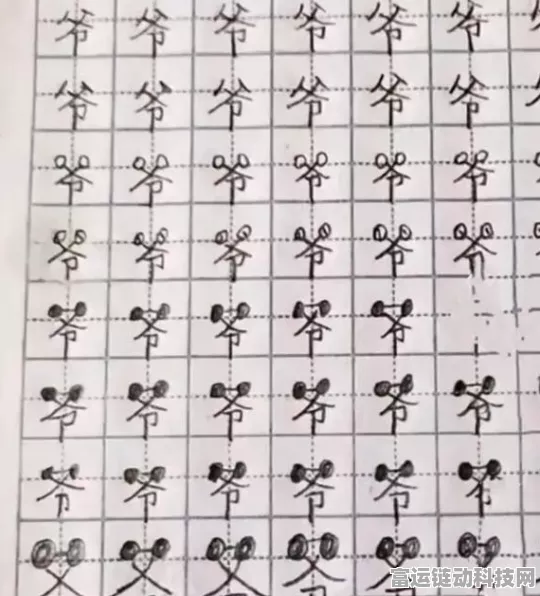 爷 爷 爷 爷 爷 爷
爷 爷 爷 爷 爷 爷
爷 爷 爷 爷 爷 爷
爷 爷 爷 爷 爷 爷
爷 爷 爷 爷 爷
爷 爷 爷 爷 爷 爷
爷 爷 爷 爷 爷 爷
富运链动科技网